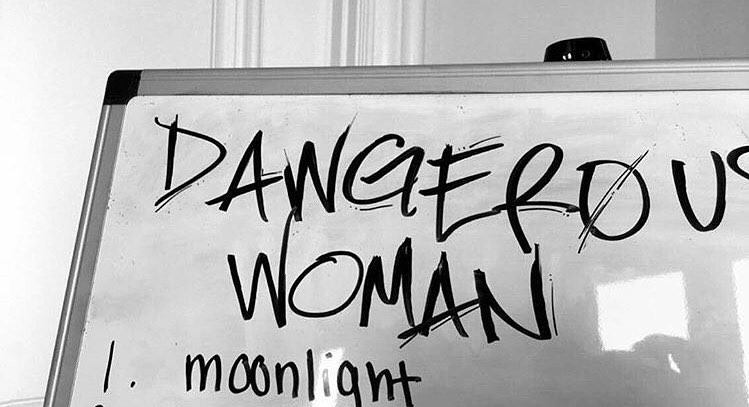 DANGEROUS
WOMAN
1. moonlight